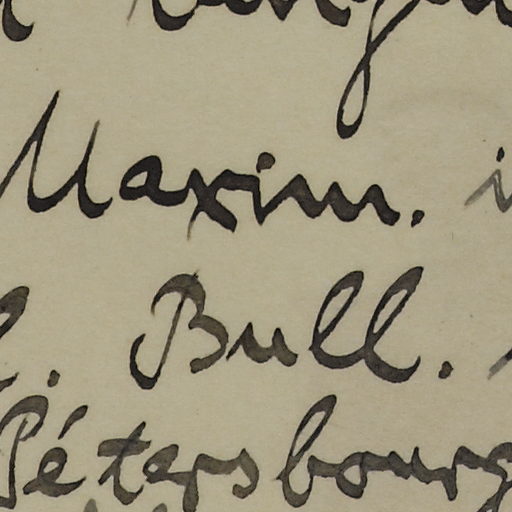 Maxim. i
. Bull.
Pétersbourg